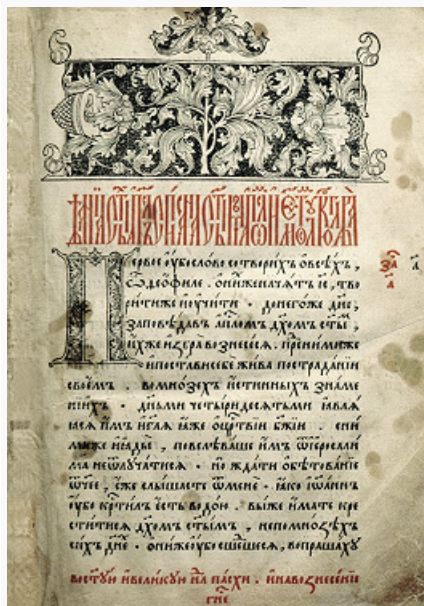 Первое оубо слово сотворихъ о всѣхъ,
ѽ деѡфиле. о нихже начатъ іс, тво
рити же и оучити. до негоже дне,
заповѣдавъ апⷭ҇ломъ дх҃омъ ст҃ымъ,
ихже избра вознесесѧ. пред ними же
и постави себе жива по страданіи
своемъ. во мнозѣхъ истинныхъ знаме
ніихъ. дньми четыридесѧтьми ꙗвлѧ
ꙗсѧ имъ и гл҃ѧ ꙗже о црⷭ҇твіи бж҃іи. с ни
ми же и ꙗдыи, повелѣваше имъ ѿ іерⷭ҇оали
ма не ѿлучатисѧ. но ждати обѣтованіе
ѿчее, еже слышасте ѿ мене. ꙗко іѡаннъ
оубо крⷭ҇тилъ есть водою. вы же имате кре
ститисѧ дх҃омъ ст҃ымъ, не по мнозѣхъ
сихъ днехъ. они же оубо сшедшесѧ, вопрашахꙋ
во ст҃ꙋю и великꙋю нлⷧ҇ю пасхи. и на вознесеніе
гн҃е